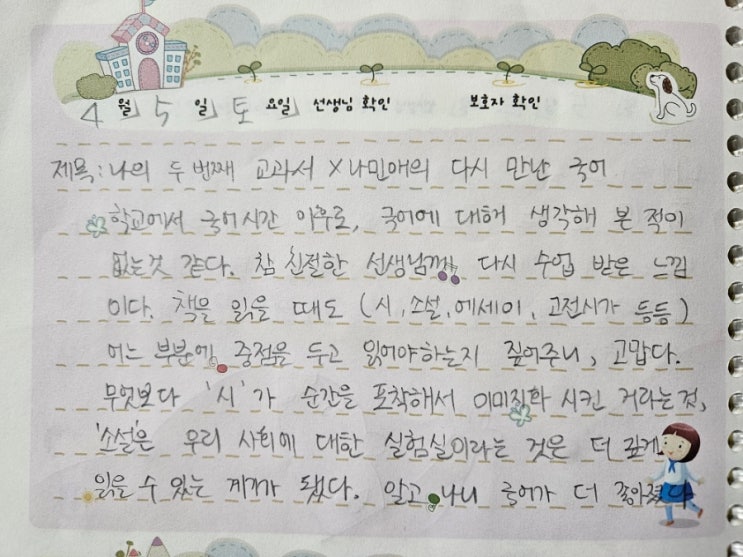 4월 5일 토요일 선생님 확인 보호자 확인
제목: 나의 두 번째 교과서 X 나민애의 다시 만난 국어
학교에서 국어시간 이후로, 국어에 대해 생각해 본 적이
없는것 같다. 참 친절한 선생님께 다시 수업 받은 느낌
이다. 책을 읽을 때도 (시, 소설, 에세이, 고전시가 등등)
어느 부분에 중점을 두고 읽어야하는지 짚어주니, 고맙다.
무엇보다 '시'가 순간을 포착해서 이미지화 시킨 거라는것,
'소설'은 우리 사회에 대한 실험실이라는 것은 더 깊게
읽을 수 있는 계기가 됐다. 알고 나니 국어가 더 좋아졌다